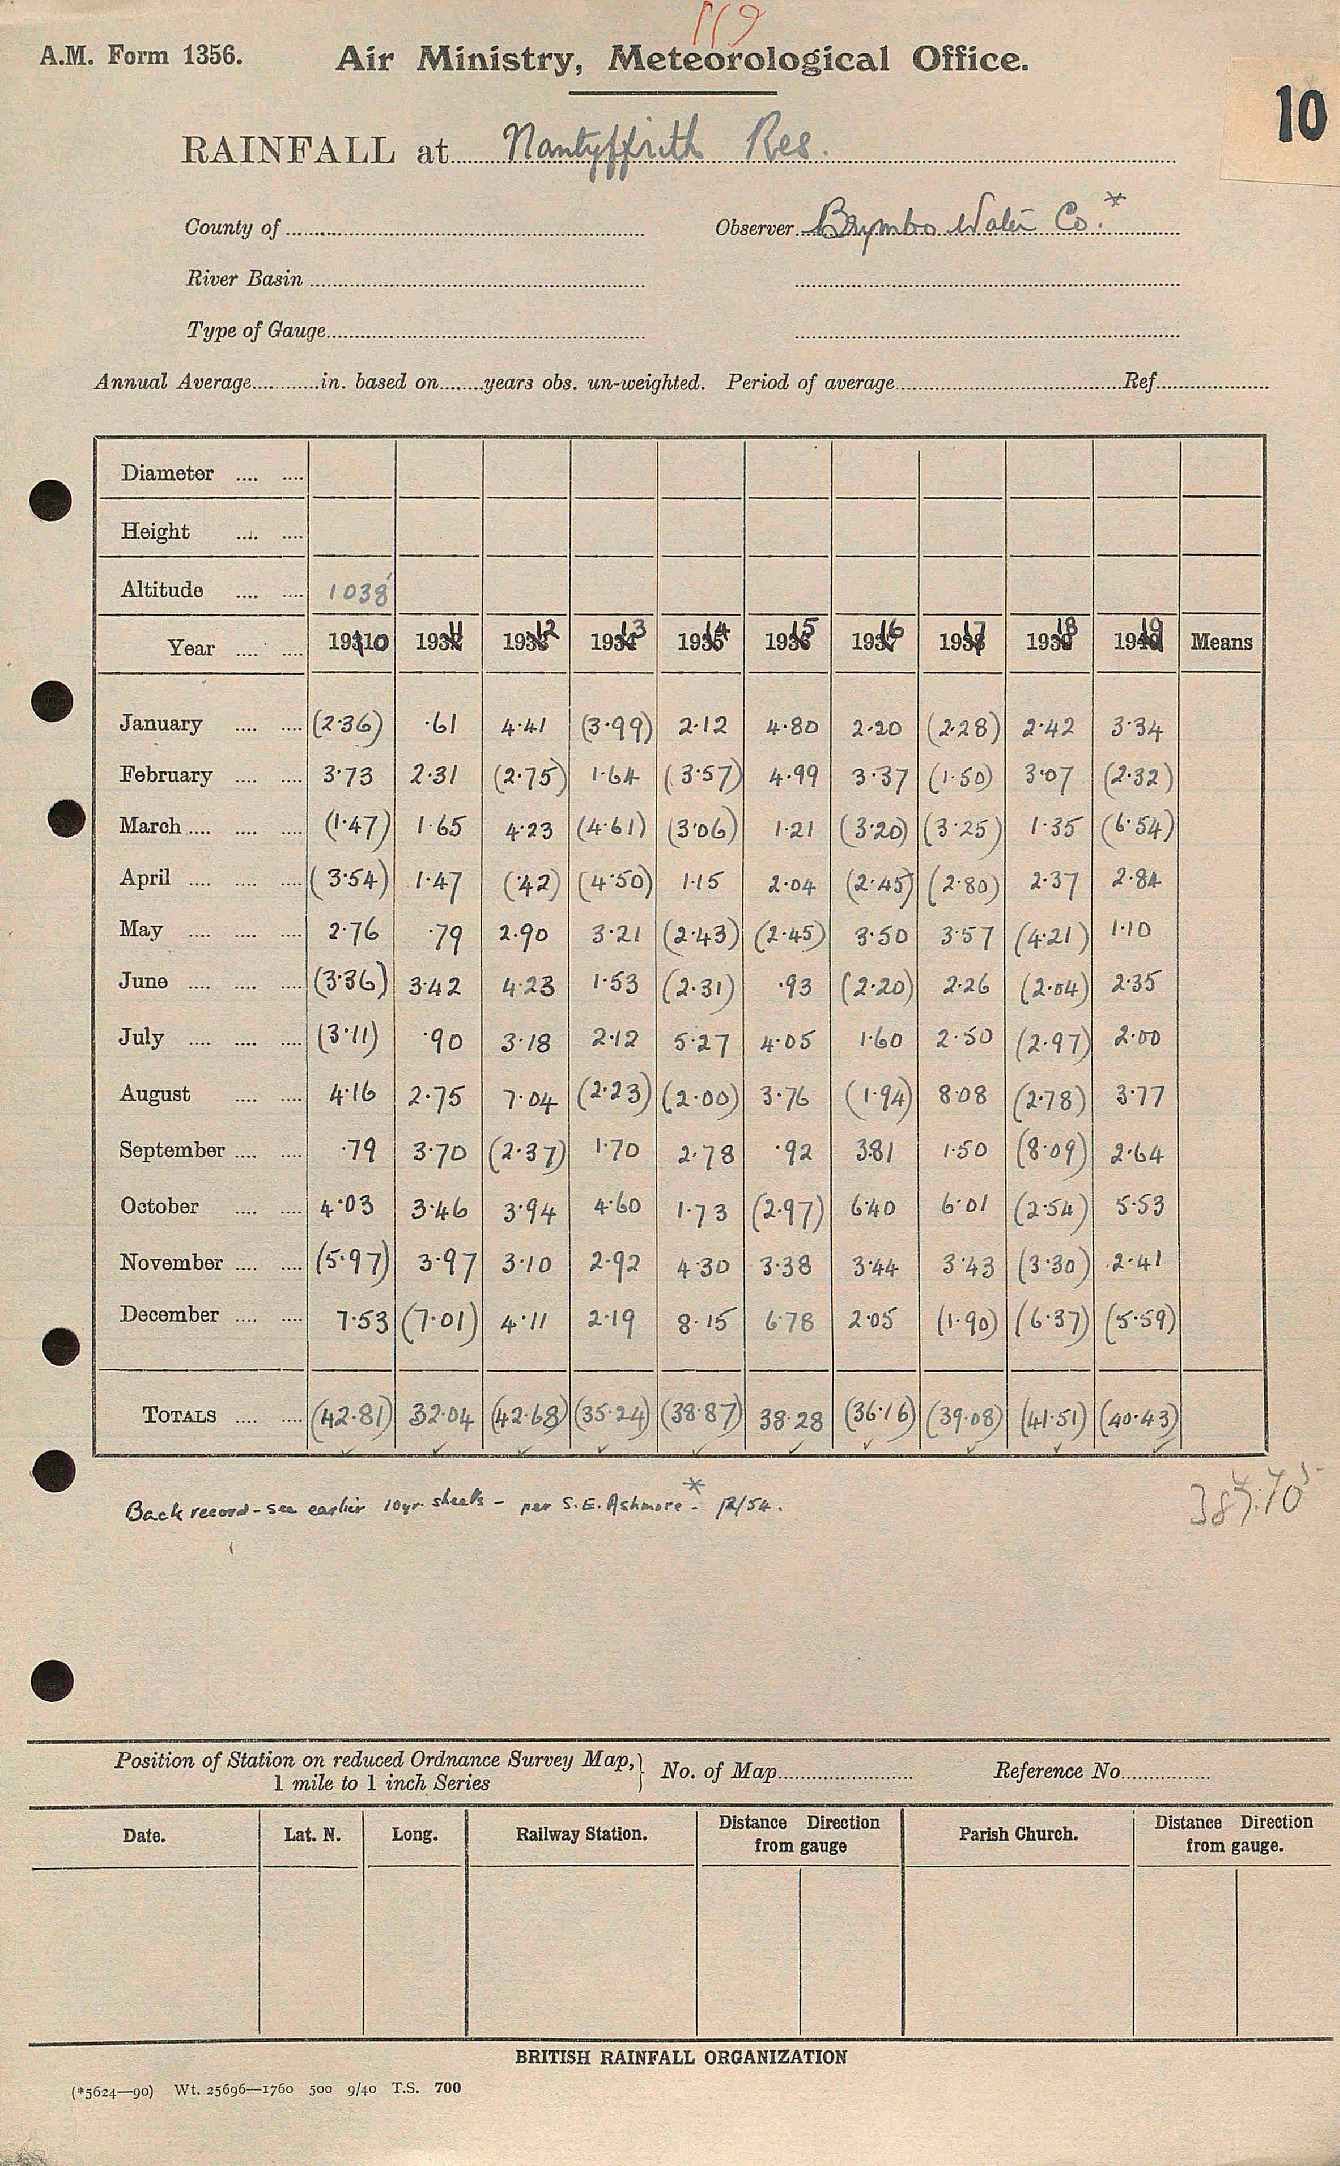 119
A.M. Form 1356. Air Ministry, Meteorological Office.
10
RAINFALL at Nantyffrith Res.
County of Observer Brymbo Water Co.*
River Basin
Type of Gauge
Annual Average in. based on years obs. un-weighted. Period of average Ref
Diameter
Height
Altitude 1038'
Year 1910 1911 1912 1913 1914 1915 1916 1917 1918 1919 Means
January (2.36) .61 4.41 (3.99) 2.12 4.80 2.20 (2.28) 2.42 3.34
February 3.73 2.31 (2.75) 1.64 (3.57) 4.99 3.37 (1.50) 3.07 (2.32)
March (1.47) 1.65 4.23 (4.61) (3.06) 1.21 (3.20) (3.25) 1.35 (6.54)
April (3.54) 1.47 (.42) (4.50) 1.15 2.04 (2.45) (2.80) 2.37 2.84
May 2.76 .79 2.90 3.21 (2.43) (2.45) 3.50 3.57 (4.21) 1.10
June (3.36) 3.42 4.23 1.53 (2.31) .93 (2.20) 2.26 (2.04) 2.35
July (3.11) .90 3.18 2.12 5.27 4.05 1.60 2.50 (2.97) 2.00
August 4.16 2.75 7.04 (2.23) (2.00) 3.76 (1.94) 8.08 (2.78) 3.77
September .79 3.70 (2.37) 1.70 2.78 .92 3.81 1.50 (8.09) 2.64
October 4.03 3.46 3.94 4.60 1.73 (2.97) 6.40 6.01 (2.54) 5.53
November (5.97) 3.97 3.10 2.92 4.30 3.38 3.44 3.43 (3.30) 2.41
December 7.53 (7.01) 4.11 2.19 8.15 6.78 2.05 (1.90) (6.37) (5.59)
TOTALS (42.81) 32.04 (42.68) (35.24) (38.87) 38.28 (36.16) (39.08) (41.51) (40.43)
Back record - see earlier 10yr. sheets - per S.E. Ashmore.* 12/54.
Position of Station on reduced Ordnance Survey Map, 1 mile to 1 inch Series No. of Map Reference No.
Date. Lat. N. Long. Railway Station. Distance Direction from gauge Parish Church. Distance Direction from gauge.
BRITISH RAINFALL ORGANIZATION
(*5624—90) Wt. 25696—1760 500 9/40 T.S. 700